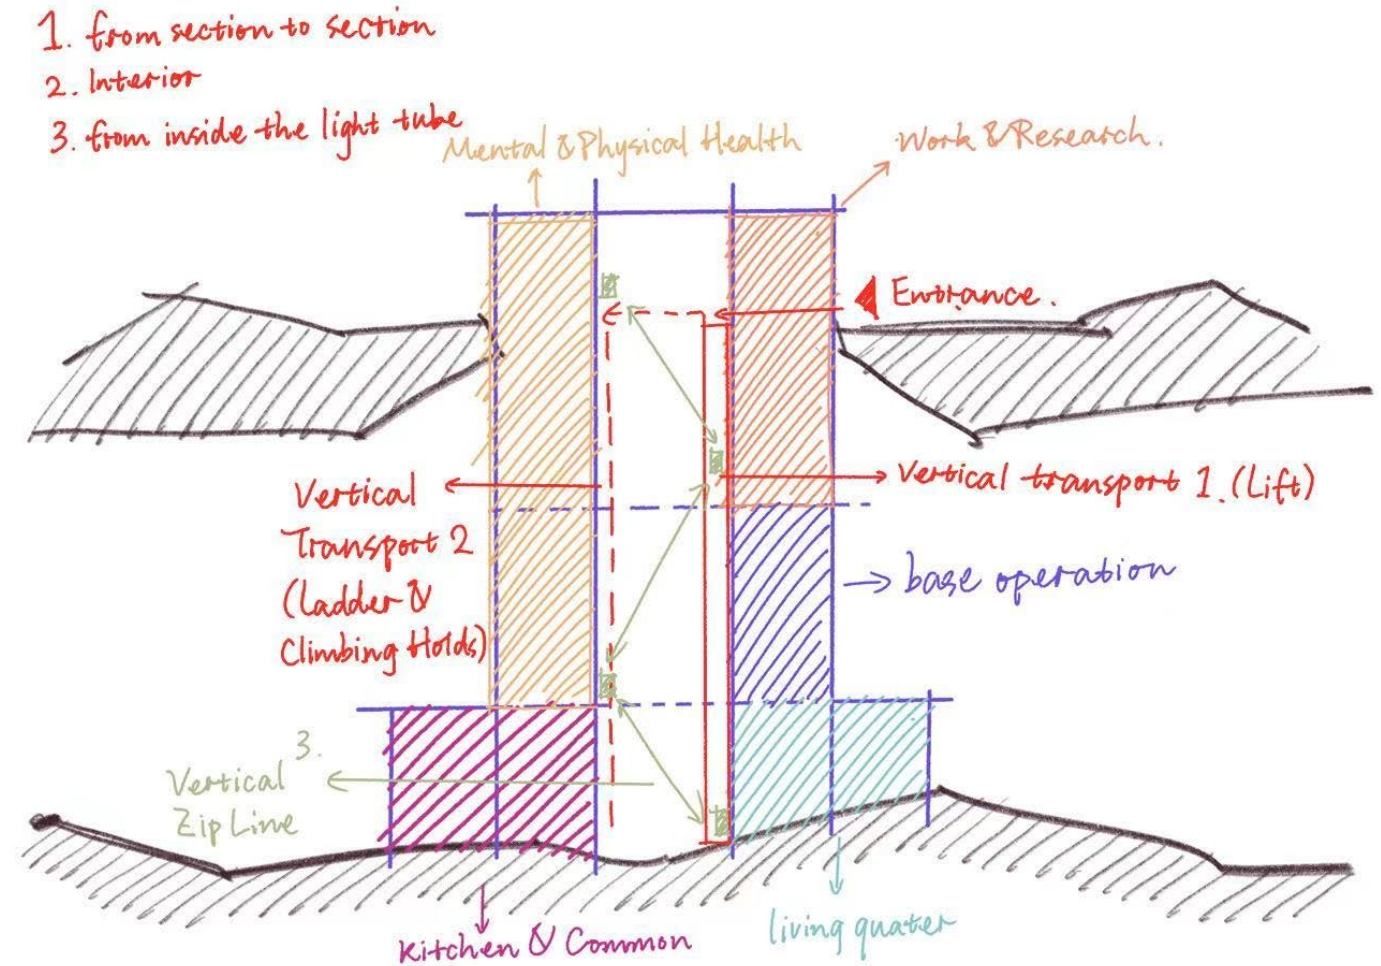 1. from section to section
2. Interior
3. from inside the light tube
Mental & Physical Health
Work & Research.
Entrance.
Vertical
Transport 2
(Ladder &
Climbing Holds)
Vertical transport 1. (Lift)
base operation
3.
Vertical
Zip Line
Kitchen & Common
living quater